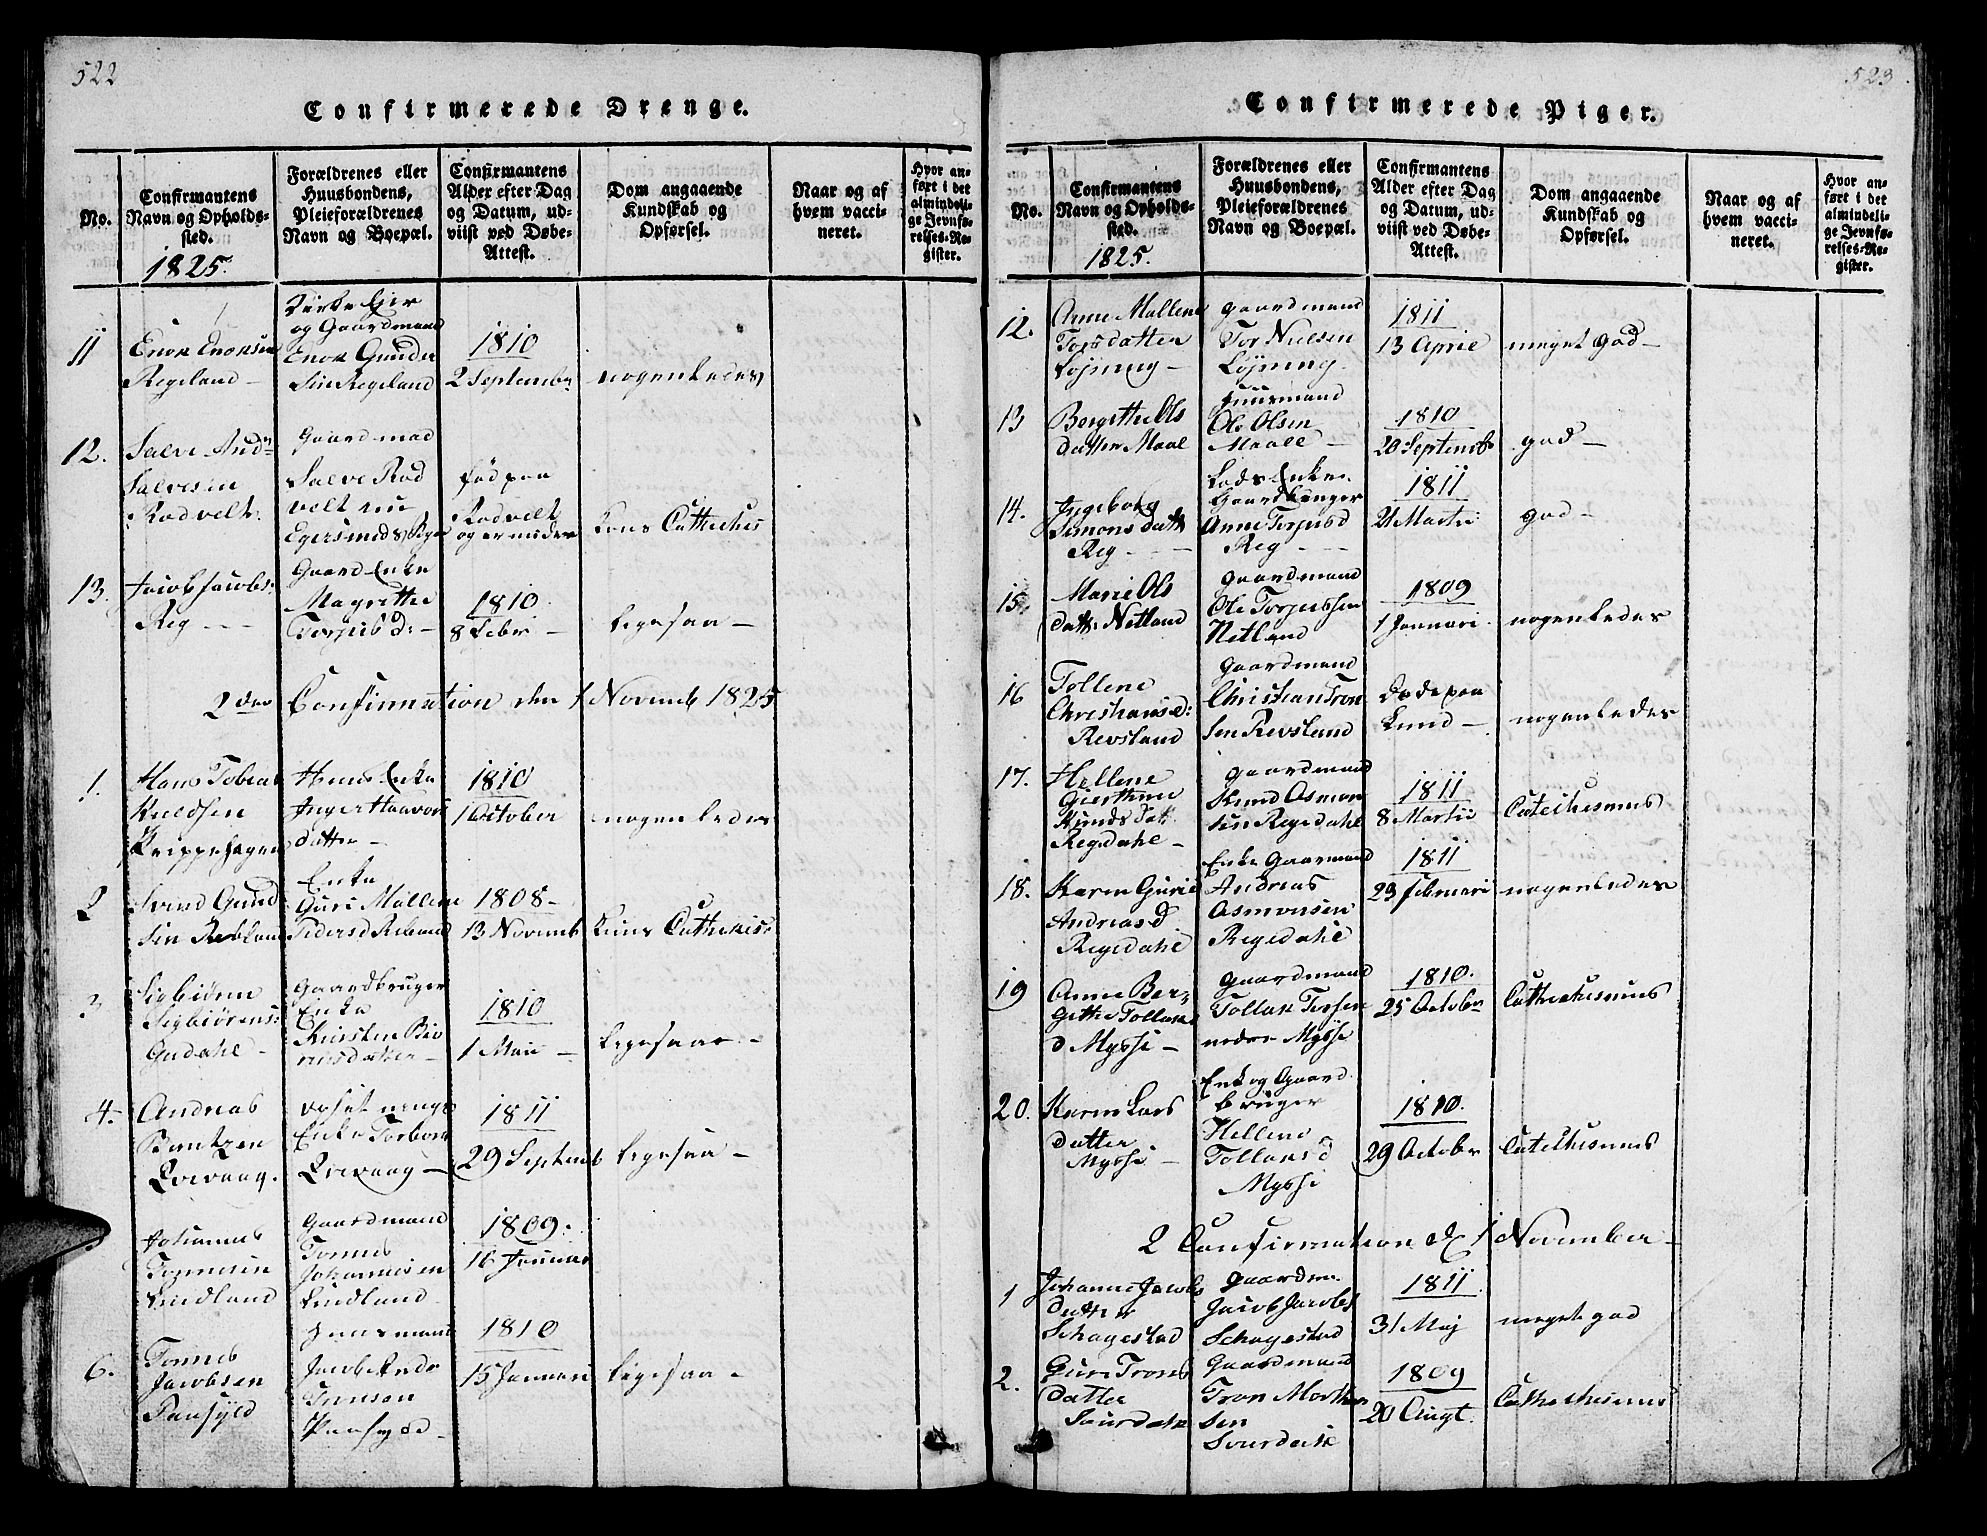 522
Confirmerede Drenge.
No.
Confirmantens
Navn og Opholds-
sted.
1825.
Forældrenes eller
Huusbondens,
Pleieforældrenes
Navn og Boepæl.
Confirmantens
Alder efter Dag
og Datum, ud-
viist ved Døbe-
Attest.
Dom angaaende
Kundskab og
Opførsel.
Naar og af
hvem vacci-
neret.
Hvor an-
ført i det
almindeli-
ge Jevnfø-
relses-Re-
gister.
11
Enok Enoksen
Regeland -
Kirke Eier
og Gaardmand
Enok Gunder
sen Regeland
1810
2 Septembr
nogenledes
12.
Salve And:
Salvesen
Rodvelt.
Gaardmad
Salve Rod
velt nu
født paa
Rodvelt
og er under
Kons Cathechis
13.
Jacob Jacobs:
Reg - - -
Gaard Enke
Magrethe
Torjusd: -
1810
8 Febr -
ligesaa -
2den Confirmation den 1 Novemb 1825
1.
Hans Tobias
Knudsen
Krippehagen
Huus Enke
Inger Haavors
datter -
1810
1 October
nogenledes
2
Svend Gund
sen Rebland
Enke
Guri Mallene
Pedersd Rebland
1808 -
13 Novemb
Kuns Cathekis:
3
Sigbiørn
Sigbiørens:
Gydahl -
Gaardbruger
Enke
Kirsten Biø
rnsdatter -
1810
1 Mai -
ligesaa -
4.
Andreas
Berntzen
Qvevaag.
Enke Torbor
Qvevaag -
1811
29 Septemb
ligesaa -
Johannes
Tonnesen
Lindland
Gaardmand
Tonnes
Johannesen
Lindland
1809.
16 Januar
6.
Tonnes
Jacobsen
Huusmand
Jacob Ande
Tonsen
1810
15 Januari
ligesaa -
523
Confirmerede Piger.
No.
Confirmantens
Navn og Opholds-
sted.
1825.
Forældrenes eller
Huusbondens,
Pleieforældrenes
Navn og Boepæl.
Confirmantens
Alder efter Dag
og Datum, ud-
viist ved Døbe-
Attest.
Dom angaaende
Kundskab og
Opførsel.
Naar og af
hvem vacci-
neret.
Hvor an-
ført i det
almindeli-
ge Jevnfø-
relses-Re-
gister.
12.
Anne Mallene
Torsdatter
Løjning -
Gaardmand
Tor Nielsen
Løjning.
1811
13 April
meget god -
13
Bergitthe Ols
datter Maal
Huusmand
Ole Olsen
Maale -
1810
20 Septemb
god -
14.
Ingeborg
Simonsdatt
Reg - - -
Lods Enke.
Gaardbruger
Anne Torjusd
Reg - - -
1811
21 Martii
god -
15.
Marie Ols
datt. Netland
Gaardmand
Ole Torjussen
Netland
1809
1 Januari.
nogenledes
16
Tollene
Christiansd:
Revsland
Gaardmand
Christian Tron
sen Revsland
Døde paa
Lund -
nogenledes
17.
Hellene
Giertrine
Knuds Datt
Regedahl -
Gaardmand
Knud Asmon
sen Regedahl
1811
8 Martii
Catechismus
18.
Karen Gurie
Andreas D
Regedahl
Enke Gaarmand
Andreas
Asmonsen
Regedahl
1811
23 Februari
nogenledes
19
Anne Ber-
Githe Tollaks
D Mysse -
Gaardmand
Tollak Torsen
neder Mysse
1810.
25 Octobr
Cathechismus
20.
Karen Lars
datter
Mysse -
Enke og Gaard
bruger
Hellene
Tollaksd
Mysse
1810.
29 October
Catechismus
2 Confirmation d 1 November -
1
Johanne Jacobs
datter
Schagestad
Gaardm.
Jacob Jacobs
Schagestad
1811
31 Maj
meget god
2.
Guri Trons
datter
Gaardmand
Tron Morthen
sen
1809
20 Augt.
Cathechismus